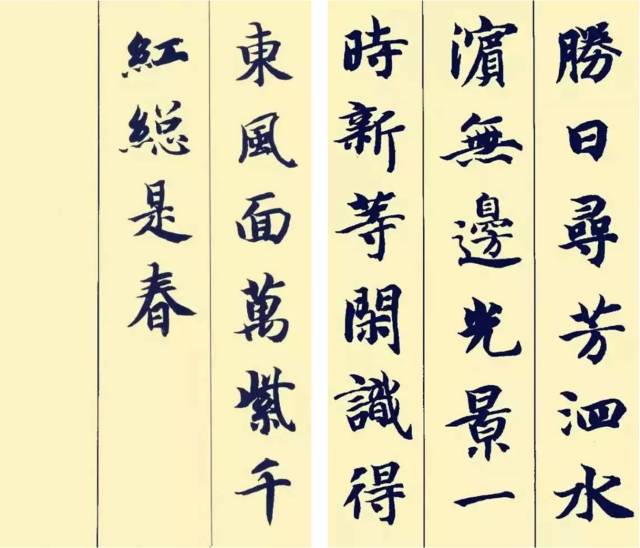 勝日尋芳泗水
濵無邊光景一
時新等閑識得
東風面萬紫千
紅緫是春